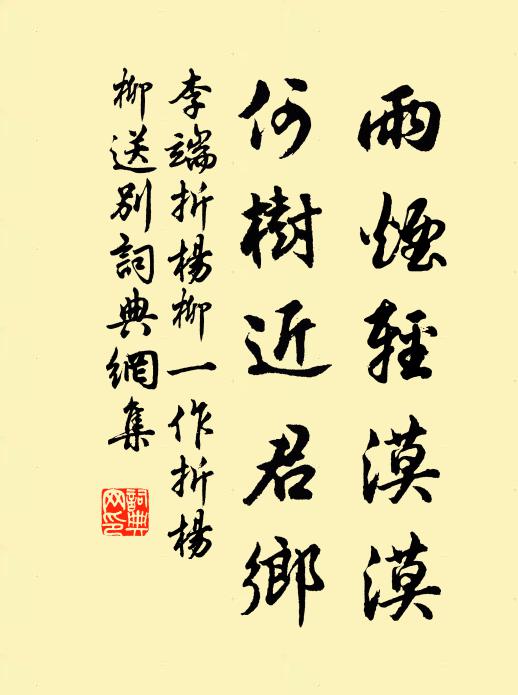 雨煙輕漠漠
何樹近君鄉
李端折楊柳一作折楊
柳送別詞典網集
詞典
网印